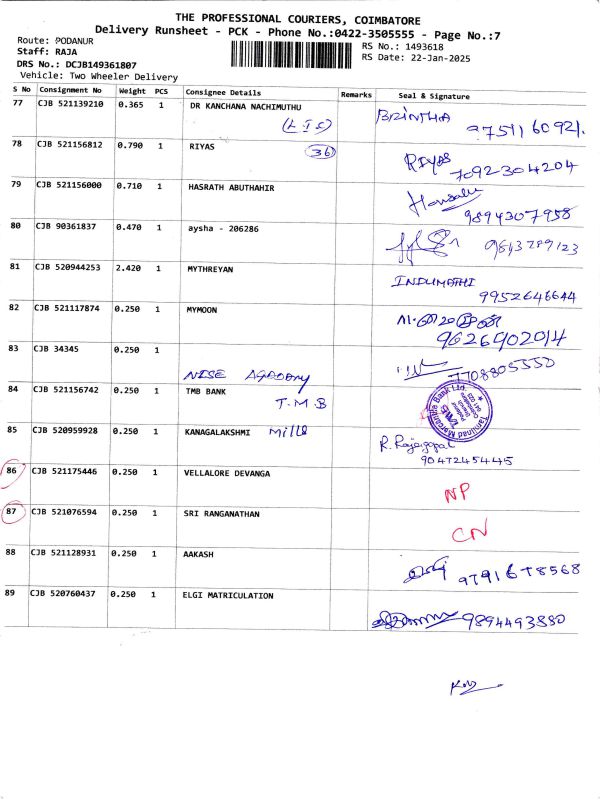 THE PROFESSIONAL COURIERS, COIMBATORE
Delivery Runsheet - PCK - Phone No.:0422-3505555 - Page No.:7
Route: PODANUR
RS No.: 1493618
Staff: RAJA
RS Date: 22-Jan-2025
DRS No.: DCJB149361807
Vehicle: Two Wheeler Delivery
S No Consignment No Weight PCS Consignee Details Remarks Seal & Signature
77 CJB 521139210 0.365 1 DR KANCHANA NACHIMUTHU BRINTHA
(LIC) 9751160921.
78 CJB 521156812 0.790 1 RIYAS 36 RIYAS
7092304204
79 CJB 521156000 0.710 1 HASRATH ABUTHAHIR
9894307958
80 CJB 90361837 0.470 1 aysha - 206286 9843789123
81 CJB 520944253 2.420 1 MYTHREYAN INDUMATHI
9952646644
82 CJB 521117874 0.250 1 MYMOON
9626902014
83 CJB 34345 0.250 1
7708805550
84 CJB 521156742 0.250 1 TMB BANK
T.M.B
Tamilnad Mercantile Bank Ltd.
85 CJB 520959928 0.250 1 KANAGALAKSHMI Mills R. Rajagopal
9047245445
86 CJB 521175446 0.250 1 VELLALORE DEVANGA NP
87 CJB 521076594 0.250 1 SRI RANGANATHAN CN
88 CJB 521128931 0.250 1 AAKASH 9791678568
89 CJB 520760437 0.250 1 ELGI MATRICULATION 9894493880